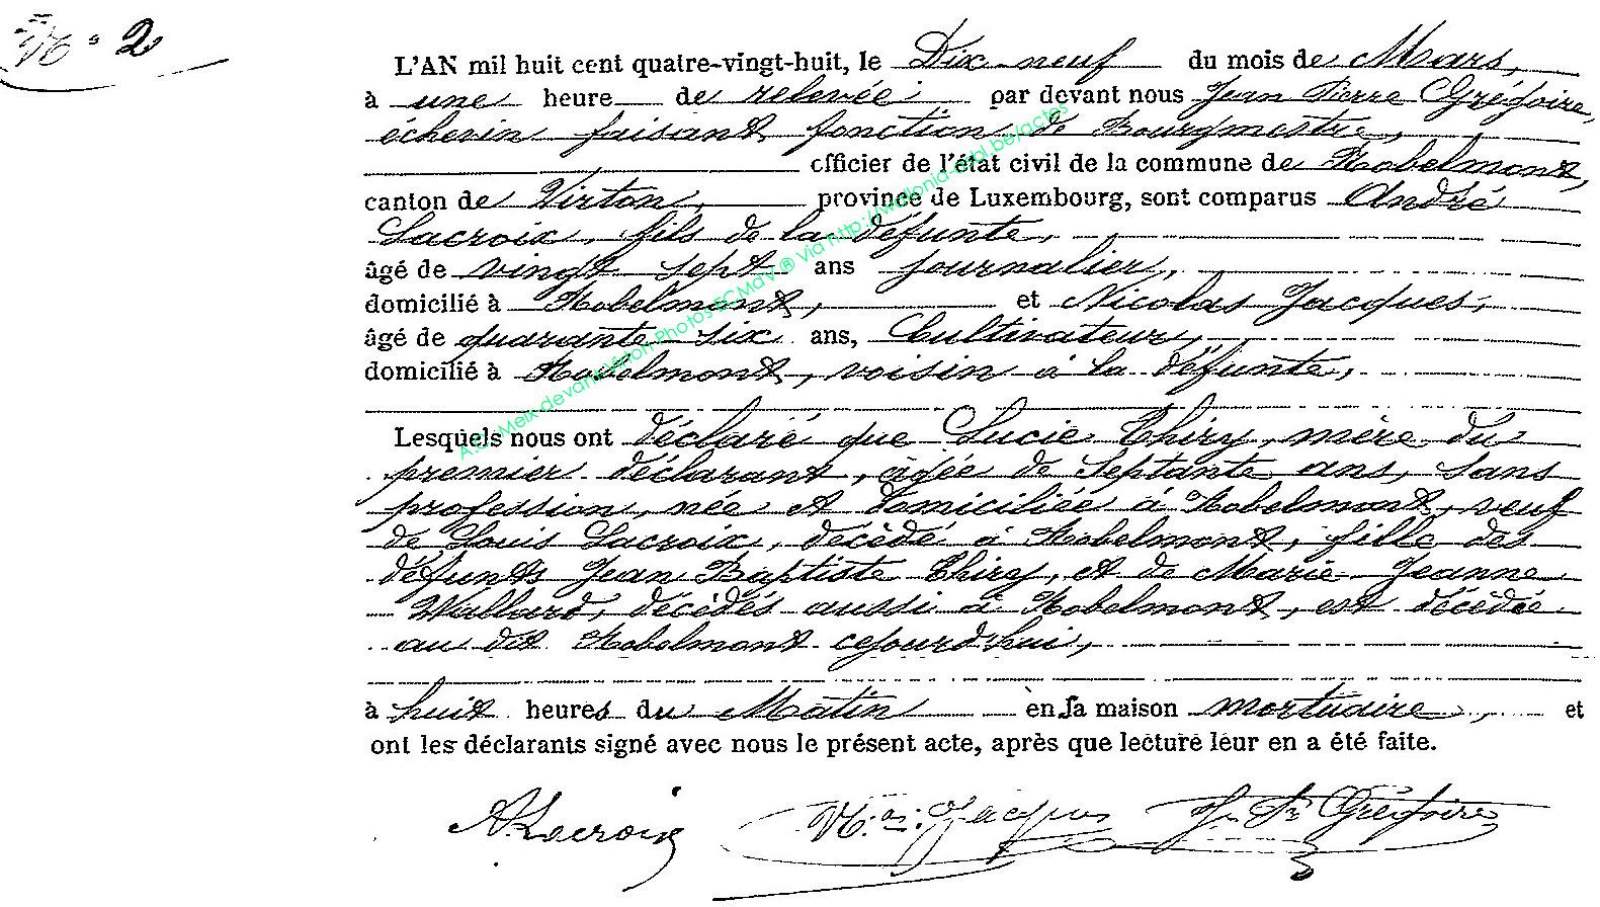 N° 2
L'AN mil huit cent quatre-vingt-huit, le Dix-neuf du mois de Mars,
à une heure de relevée par devant nous Jean Pierre Grégoire,
échevin faisant fonction de Bourgmestre,
officier de l'état civil de la commune de Robelmont,
canton de Virton, province de Luxembourg, sont comparus André
Lacroix, fils de la défunte,
âgé de vingt sept ans journalier,
domicilié à Robelmont, et Nicolas Jacques,
âgé de quarante six ans, Cultivateur,
domicilié à Robelmont, voisin à la défunte,
Lesquels nous ont déclaré que Lucie Thiry, mère du
premier déclarant, âgée de Septante ans, sans
profession, née et domiciliée à Robelmont, veuf
de Louis Lacroix, décédé à Robelmont, fille des
défunts Jean Baptiste Thiry, et de Marie Jeanne
Wallard, décédés aussi à Robelmont, est décédée
au dit Robelmont cejourd'hui,
à huit heures du Matin en sa maison mortuaire, et
ont les déclarants signé avec nous le présent acte, après que lecture leur en a été faite.
A. Lacroix Nas. Jacques J. Pre Grégoire
via http://wallonia-asbl.be/actes